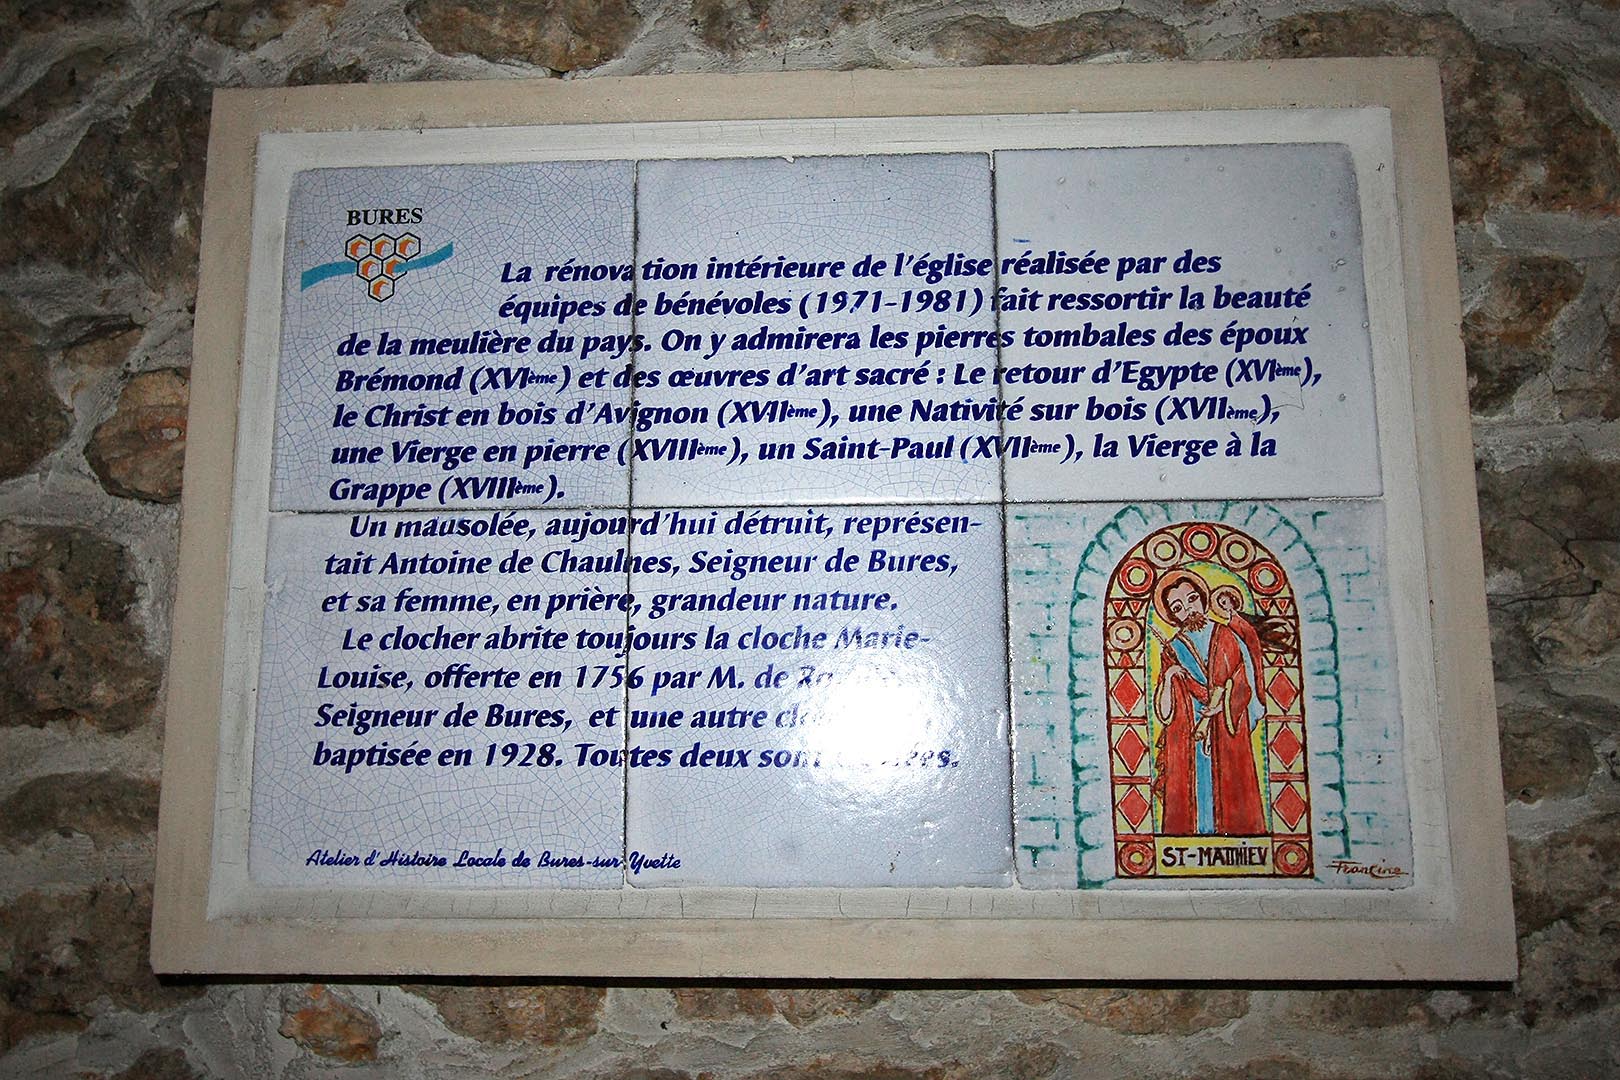 BURES
La rénovation intérieure de l'église réalisée par des
équipes de bénévoles (1971-1981) fait ressortir la beauté
de la meulière du pays. On y admirera les pierres tombales des époux
Brémond (XVIème) et des œuvres d'art sacré : Le retour d'Egypte (XVIème),
le Christ en bois d'Avignon (XVIIème), une Nativité sur bois (XVIIème),
une Vierge en pierre (XVIIIème), un Saint-Paul (XVIIème), la Vierge à la
Grappe (XVIIIème).
Un mausolée, aujourd'hui détruit, représen-
tait Antoine de Chaulnes, Seigneur de Bures,
et sa femme, en prière, grandeur nature.
Le clocher abrite toujours la cloche Marie-
Louise, offerte en 1756 par M. de
Seigneur de Bures, et une autre
baptisée en 1928. Toutes deux sont
Atelier d'Histoire Locale de Bures-sur-Yvette
ST-MATTHIEV
Francine